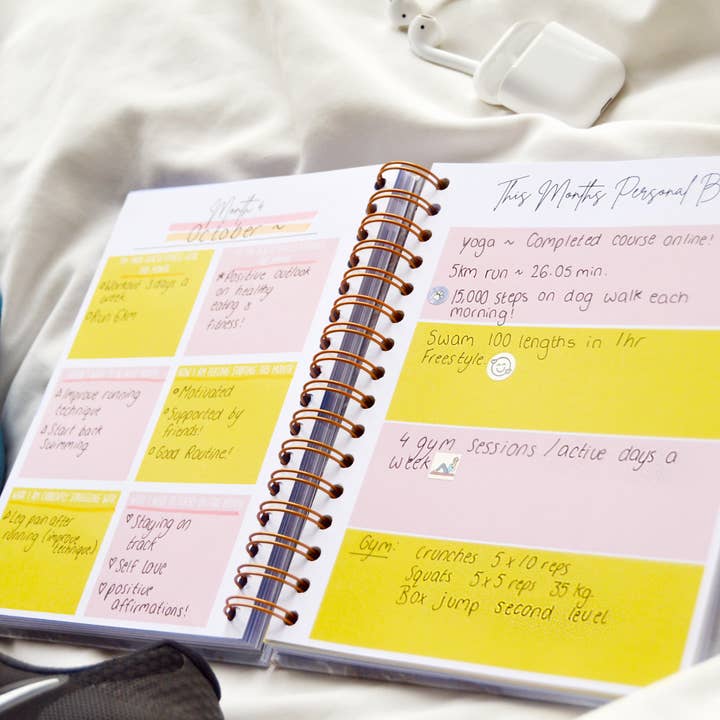 Month 4
October ~
Workout 3 days a
week
Run 6km
* Positive outlook
on healthy
eating &
fitness!
Improve running
technique
Start back
swimming
HOW I AM FEELING STARTING THIS MONTH
Motivated
Supported by
friends!
Good Routine!
WHAT I AM CURRENTLY STRUGGLING WITH
Leg pan after
running (improve
technique)
♡ Staying on
track
♡ Self love
♡ positive
affirmations!
This Months Personal B
yoga ~ Completed course online!
5km run ~ 26.05 min.
15,000 steps on dog walk each
morning!
Swam 100 lengths in 1hr
Freestyle
4 gym sessions / active days a
week
Gym: crunches 5 x 10 reps
Squats 5 x 5 reps 35 kg.
Box jump second level